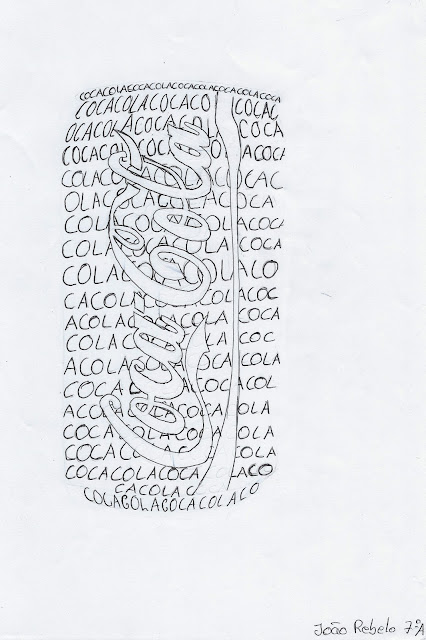 COCACOLACOCACOLACOCACOLACOCACOLACOCA
COCACOLACOCACO COCAC
OCACOLACOCACOL COCA
COCACO COCA ACOCA
COLACO COCAC
OLACO COCA
COLA LACOCA
COLA COCA
COLA LACO
CACOLA COLACOC
ACOLAC COLA COCA
COLA COLA COC
ACOLA OCA COLA
COCA CACO ACOL
ACO COCA OLA
COCA COCA OLA
COCA COCA COLA
COCACOLACOCA LACO
CACOLAC
COCACOLACOCACOLACO
Coca-Cola
João Rebelo 7ºA